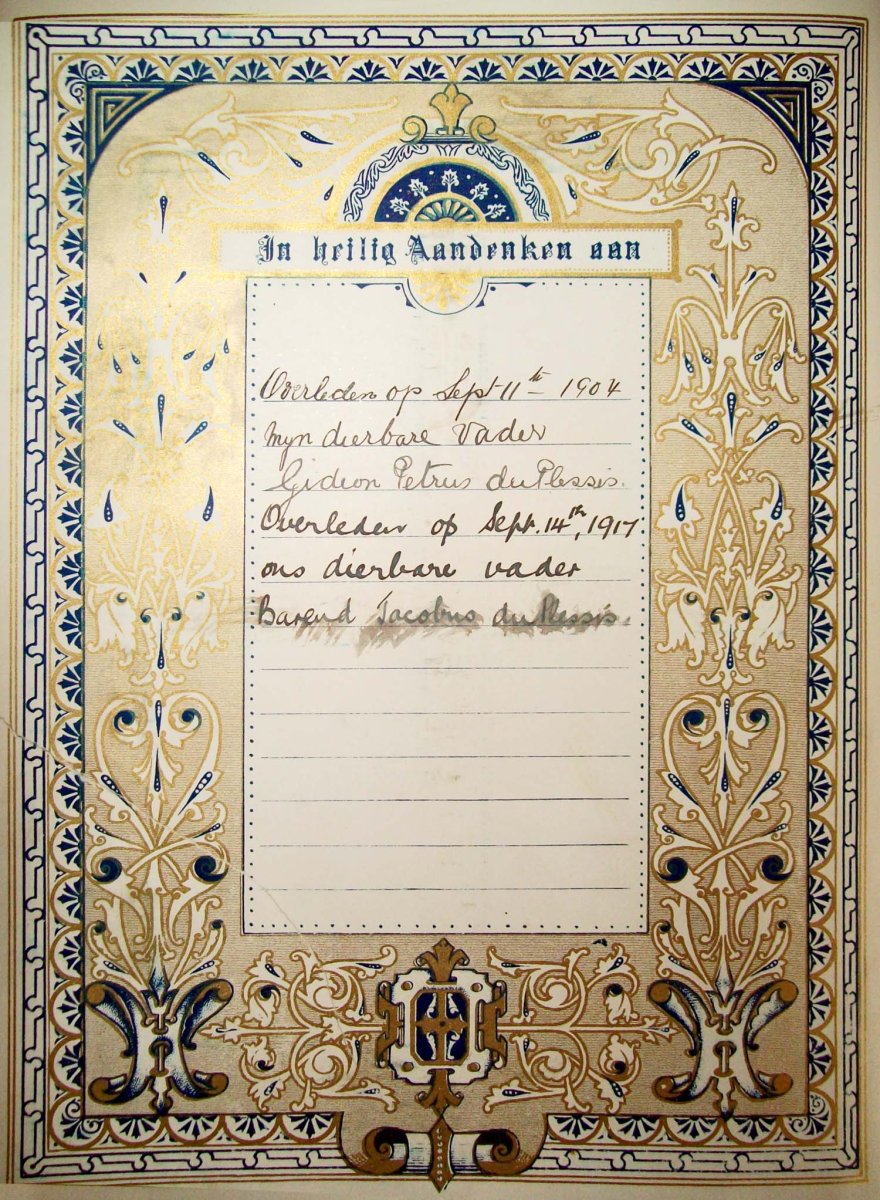 In heilig Aandenken aan
Overleden op Sept 11th 1904
Myn dierbare Vader
Gideon Petrus du Plessis.
Overleden op Sept. 14th, 1917
ons dierbare vader
Barend Jacobus du Plessis.